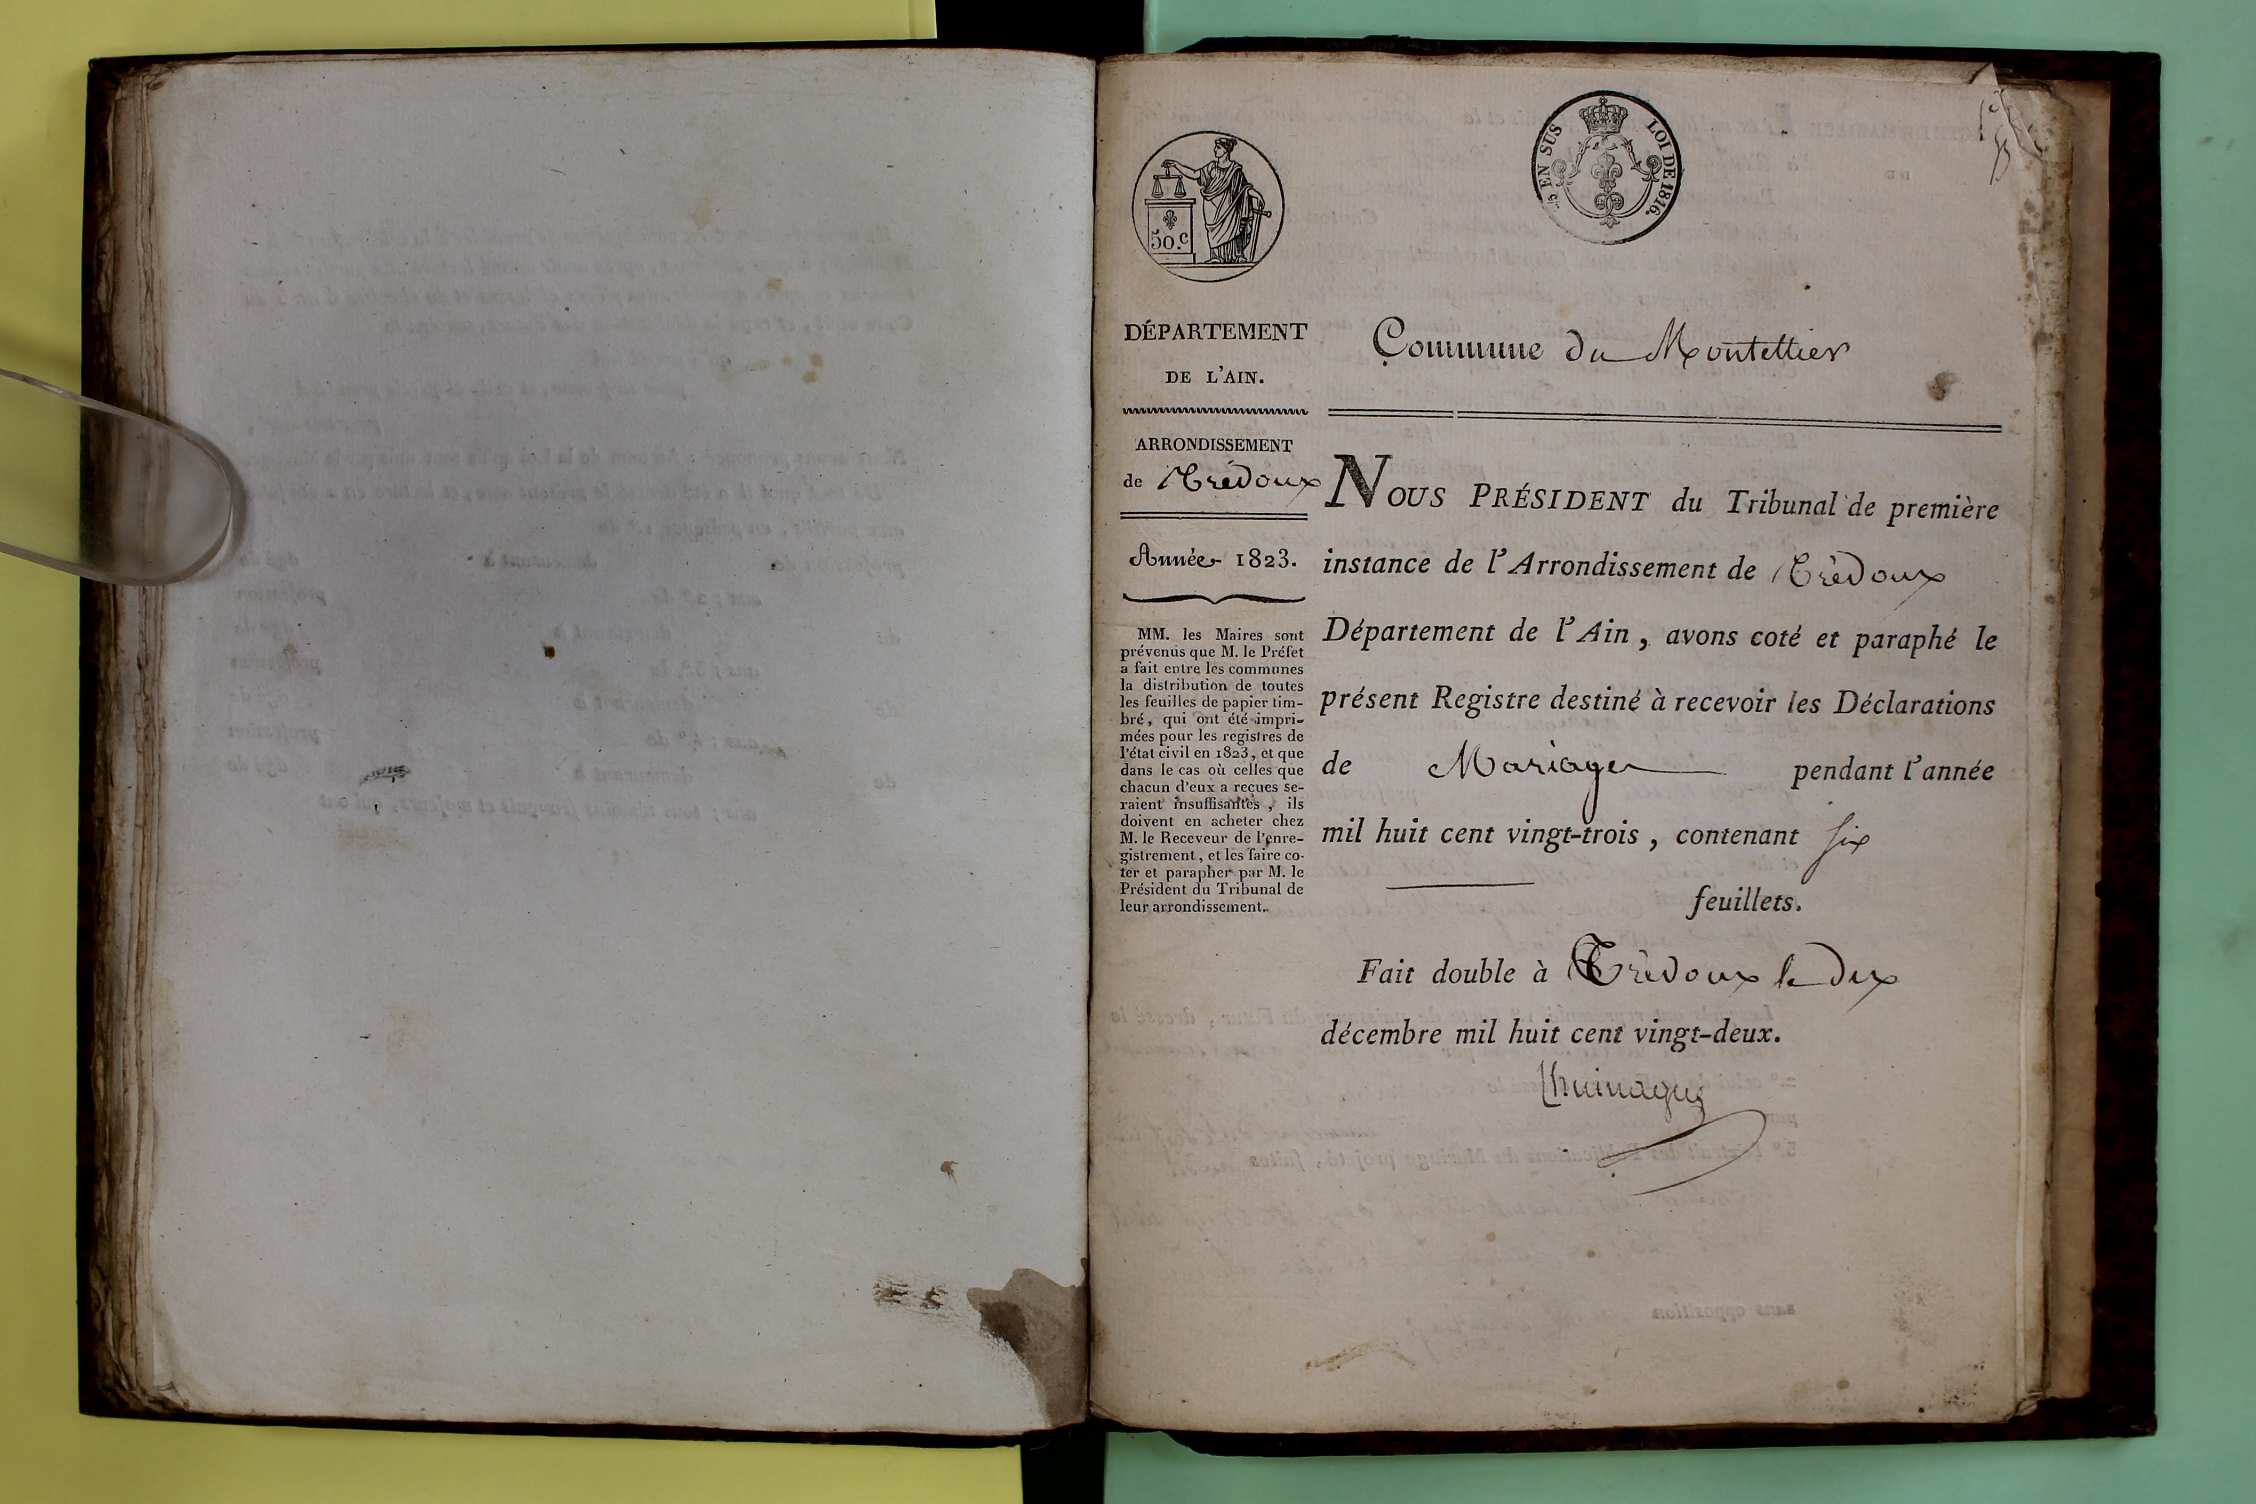 EN SUS
LOI DE 1816.
50.c
DÉPARTEMENT
DE L'AIN.
Commune du Montellier
ARRONDISSEMENT
de Trédoux
Année 1823.
MM. les Maires sont
prévenus que M. le Préfet
a fait entre les communes
la distribution de toutes
les feuilles de papier tim-
bré, qui ont été impri-
mées pour les registres de
l'état civil en 1823, et que
dans le cas où celles que
chacun d'eux a reçues se-
raient insuffisantes, ils
doivent en acheter chez
M. le Receveur de l'enre-
gistrement, et les faire co-
ter et parapher par M. le
Président du Tribunal de
leur arrondissement.
NOUS PRÉSIDENT du Tribunal de première
instance de l'Arrondissement de Trèdoux
Département de l'Ain, avons coté et paraphé le
présent Registre destiné à recevoir les Déclarations
de Mariages pendant l'année
mil huit cent vingt-trois, contenant six
feuillets.
Fait double à Trèdoux le dix
décembre mil huit cent vingt-deux.